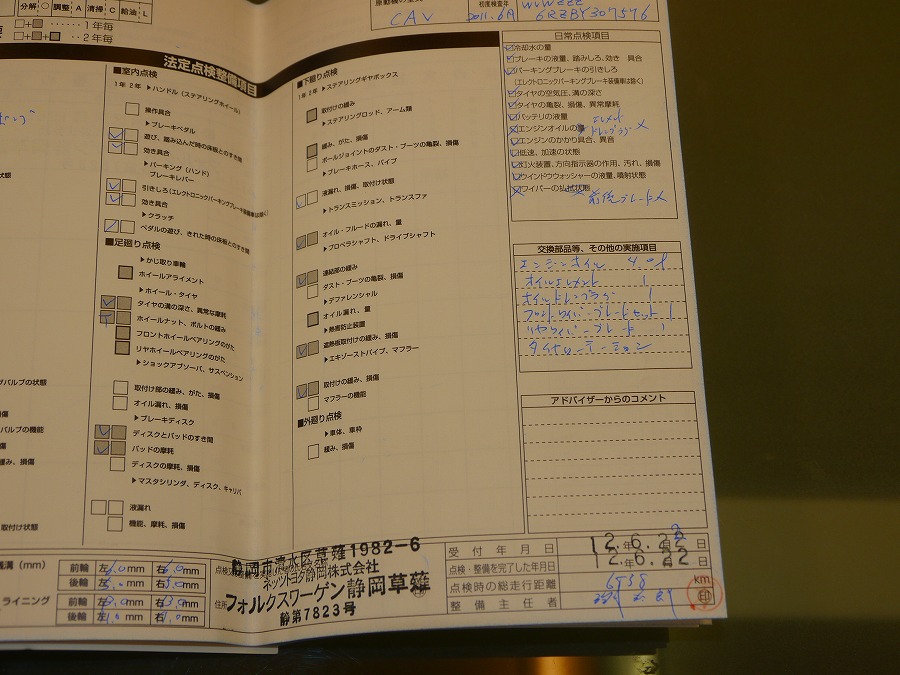 分解 ○ 調整 A 清掃 C 給油 L
・・・・・・1年毎
・・2年毎
初度検査年
CAV
2011.6月
法定点検整備項目
■室内点検
1年 2年 ▶ハンドル(ステアリングホイール)
操作具合
▶ブレーキペダル
遊び、踏み込んだ時の床板とのすき間
効き具合
▶パーキング(ハンド)
ブレーキレバー
引きしろ(エレクトロニックパーキングブレーキ装備車は除く)
効き具合
▶クラッチ
ペダルの遊び、きれた時の床板とのすき間
■足廻り点検
▶かじ取り車輪
ホイールアライメント
▶ホイール・タイヤ
タイヤの溝の深さ、異常な摩耗
ホイールナット、ボルトの緩み
フロントホイールベアリングのがた
リヤホイールベアリングのがた
▶ショックアブソーバ、サスペンション
取付け部の緩み、がた、損傷
オイル漏れ、損傷
▶ブレーキディスク
ディスクとパッドのすき間
パッドの摩耗
ディスクの摩耗、損傷
▶マスタシリンダ、ディスク、キャリパ
液漏れ
機能、摩耗、損傷
■下廻り点検
1年 2年 ▶ステアリングギヤボックス
取付けの緩み
▶ステアリングロッド、アーム類
緩み、がた、損傷
ボールジョイントのダスト・ブーツの亀裂、損傷
▶ブレーキホース、パイプ
液漏れ、損傷、取付け状態
▶トランスミッション、トランスファ
オイル・フルードの漏れ、量
▶プロペラシャフト、ドライブシャフト
連結部の緩み
ダスト・ブーツの亀裂、損傷
▶デファレンシャル
オイル漏れ、量
▶熱害防止装置
遮熱板取付けの緩み、損傷
▶エキゾーストパイプ、マフラー
取付けの緩み、損傷
マフラーの機能
■外廻り点検
▶車体、車枠
緩み、損傷
日常点検項目
冷却水の量
ブレーキの液量、踏みしろ、効き具合
パーキングブレーキの引きしろ
(エレクトロニックパーキングブレーキ装備車は除く)
タイヤの空気圧、溝の深さ
タイヤの亀裂、損傷、異常摩耗
バッテリの液量
エンジンオイルの量
エレメント
ドレンプラグ ×
エンジンのかかり具合、異音
低速、加速の状態
灯火装置、方向指示器の作用、汚れ、損傷
ウインドウウォッシャーの液量、噴射状態
ワイパーの払拭状態
前後ブレード×
交換部品等、その他の実施項目
エンジンオイル 4.0ℓ
オイルエレメント 1
オイルドレンプラグ 1
フロントワイパーブレードセット 1
リヤワイパーブレード 1
タイヤローテーション
アドバイザーからのコメント
バルブの状態
バルブの機能
緩み、損傷
取付け状態
残溝(mm)
前輪 左 mm 右 mm
後輪 左 mm 右 mm
ライニング
前輪 左 mm 右 mm
後輪 左 mm 右 mm
静岡市清水区草薙1982-6
ネッツトヨタ静岡株式会社
住所
フォルクスワーゲン静岡草薙
静第7823号
受付年月日 12年6.22日
点検・整備を完了した年月日 12年6.22日
点検時の総走行距離 6958 km
整備主任者
印